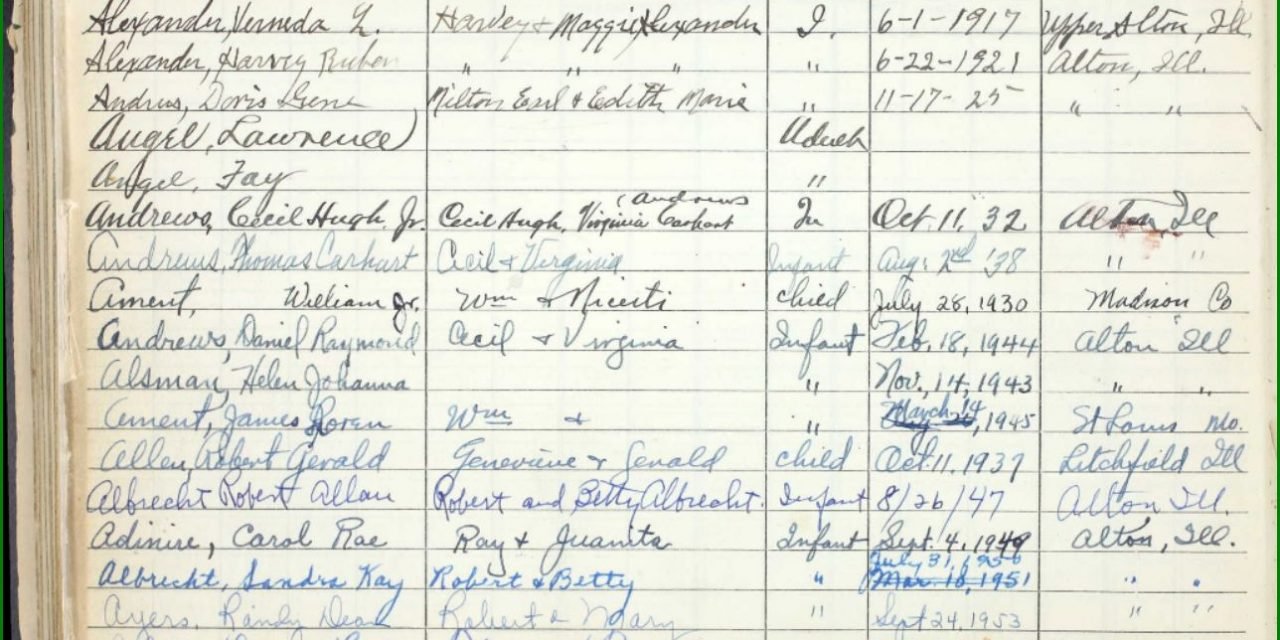 Alexander, Verneda L. Harvey & Maggie Alexander I. 6-1-1917 Upper Alton, Ill.
Alexander, Harvey Ruben " " " " 6-22-1921 Alton, Ill.
Andrus, Doris Gene Milton Earl & Edith Marie " 11-17-25 " "
Angel, Lawrence Adult
Angel, Fay "
(Andrews
Andrews, Cecil Hugh Jr. Cecil Hugh, Virginia Carhart In Oct. 11, 32 Alton, Ill
Andrews, Thomas Carhart Cecil & Virginia Infant Aug. 2nd '38 " "
Ament, William Jr. Wm & child July 28, 1930 Madison Co
Andrews, Daniel Raymond Cecil & Virginia Infant Feb. 18, 1944 Alton Ill
Alsman, Helen Johanna " Nov. 14, 1943 " "
Ament, James Loren Wm & " March 14, 1945 St Louis Mo.
Allen, Robert Gerald Genevieve & Gerald child Oct. 11, 1937 Litchfield Ill
Albrecht Robert Allan Robert and Betty Albrecht. Infant 8/26/47 Alton Ill.
Carol Rae Ray & Juanita Infant Sept. 4, 1949 Alton, Ill.
July 31, 1950
Albrecht, Sandra Kay Robert & Betty " Mar. 18, 1951 " "
Ayers, Randy Dean Robert & Mary " Sept 24, 1953 " "